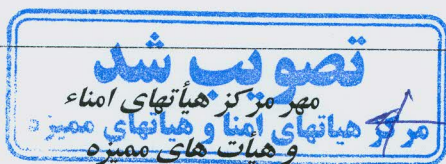 تصویب شد
مهر مرکز هیأتهای امناء
مرکز هیاتهای امنا و هیاتهای ممیزه
و هیأت های ممیزه